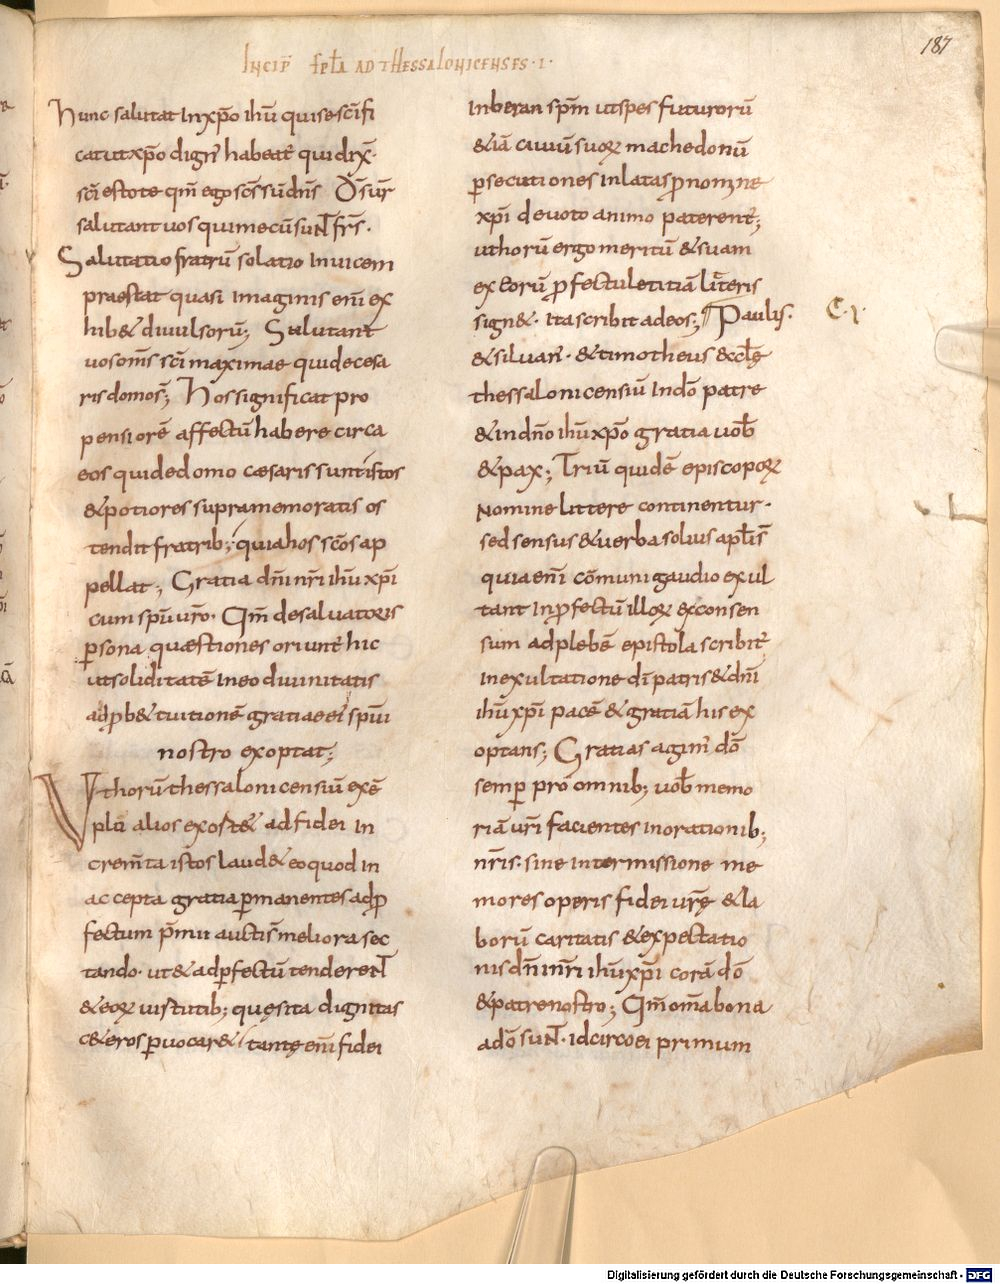 187
INCIP̄ EPL̄A AD THESSALONICENSES · I ·
Hunc salutat in xp̄o ihū qui se sc̄ifi
cat ut xp̄o dignꝰ habeatꝰ qui dix̄·
sc̄i estote qm̄ ego sc̄s sū dn̄s Dn̄s ur̄
salutant uos qui mecū suNT fr̄s ·
Salutatio fratrū solatio inuicem
praestat quasi imaginis enī ex
hib& diuulsorū; Salutant
uos om̄s sc̄i maximae qui de cesa
ris domo s̄; Hos significat pro
pensiorē affectū habere circa
eos qui de domo caesaris sunt istos
& potiores supra memoratis os
tendit fratrib; quia hos sc̄os ap
pellat; Gratia dn̄i nr̄i ihū xp̄i
cum spū ur̄o · Qm̄ de saluatoris
ꝑsona quaestiones oriuntꝰ hic
ut soliditatē in eo diuinitatis
adꝓb& tuitionē gratiae ei spūi
nostro exoptat;
Vt horū thessalonicensiū exē
plū alios exort& ad fidei in
crem̄ta istos laud& eo quod in
accepta gratia ꝑmanentes adꝓ
fectum ꝑmii auctis meliora sec
tando · ut & ad ꝑfectū tendereNT
& eoꝝ uistutib; quęsita dignitas
c&eros ꝓuocar& tantę enī fidei
inberan spm̄ ut spes futurorū
&iā ciuiū suoꝝ machedonū
ꝑsecutiones inlatas ꝓ nomine
xp̄i deuoto animo paterentꝰ;
ut horū ergo meritū & suam
ex eorū ꝓfectu letitiā litteris
sign& · ita scribit ad eos; Paulus · C · I ·
& siluanꝰ · & timotheus & ecl̄ę
thessalonicensiū in dō patre
& in dn̄o ihū xp̄o gratia uob̄
& pax; Triū quidē episcoporꝝ
Nomine littere continentur ·
sed sensus & uerba solius apl̄i s̄
quia enī cōmuni gaudio exul
tant in ꝓfectū illoꝝ ex consen
sum ad plebē epistola scribitꝰ
in exultatione dī patris & dn̄i
ihū xp̄i pacē & gratiā his ex
optans; Gratias agimꝰ dō
semꝑ pro omnib; uob̄ memo
riā ur̄i facientes in orationib;
nr̄is · sine intermissione me
mores operis fidei ur̄ę & la
borū caritatis & expectatio
nis dn̄i nr̄i ihū xp̄i corā dō
& patre nostro; Qm̄ om̄a bona
a dō suNT · idcirco ei primum
Digitalisierung gefördert durch die Deutsche Forschungsgemeinschaft - DFG